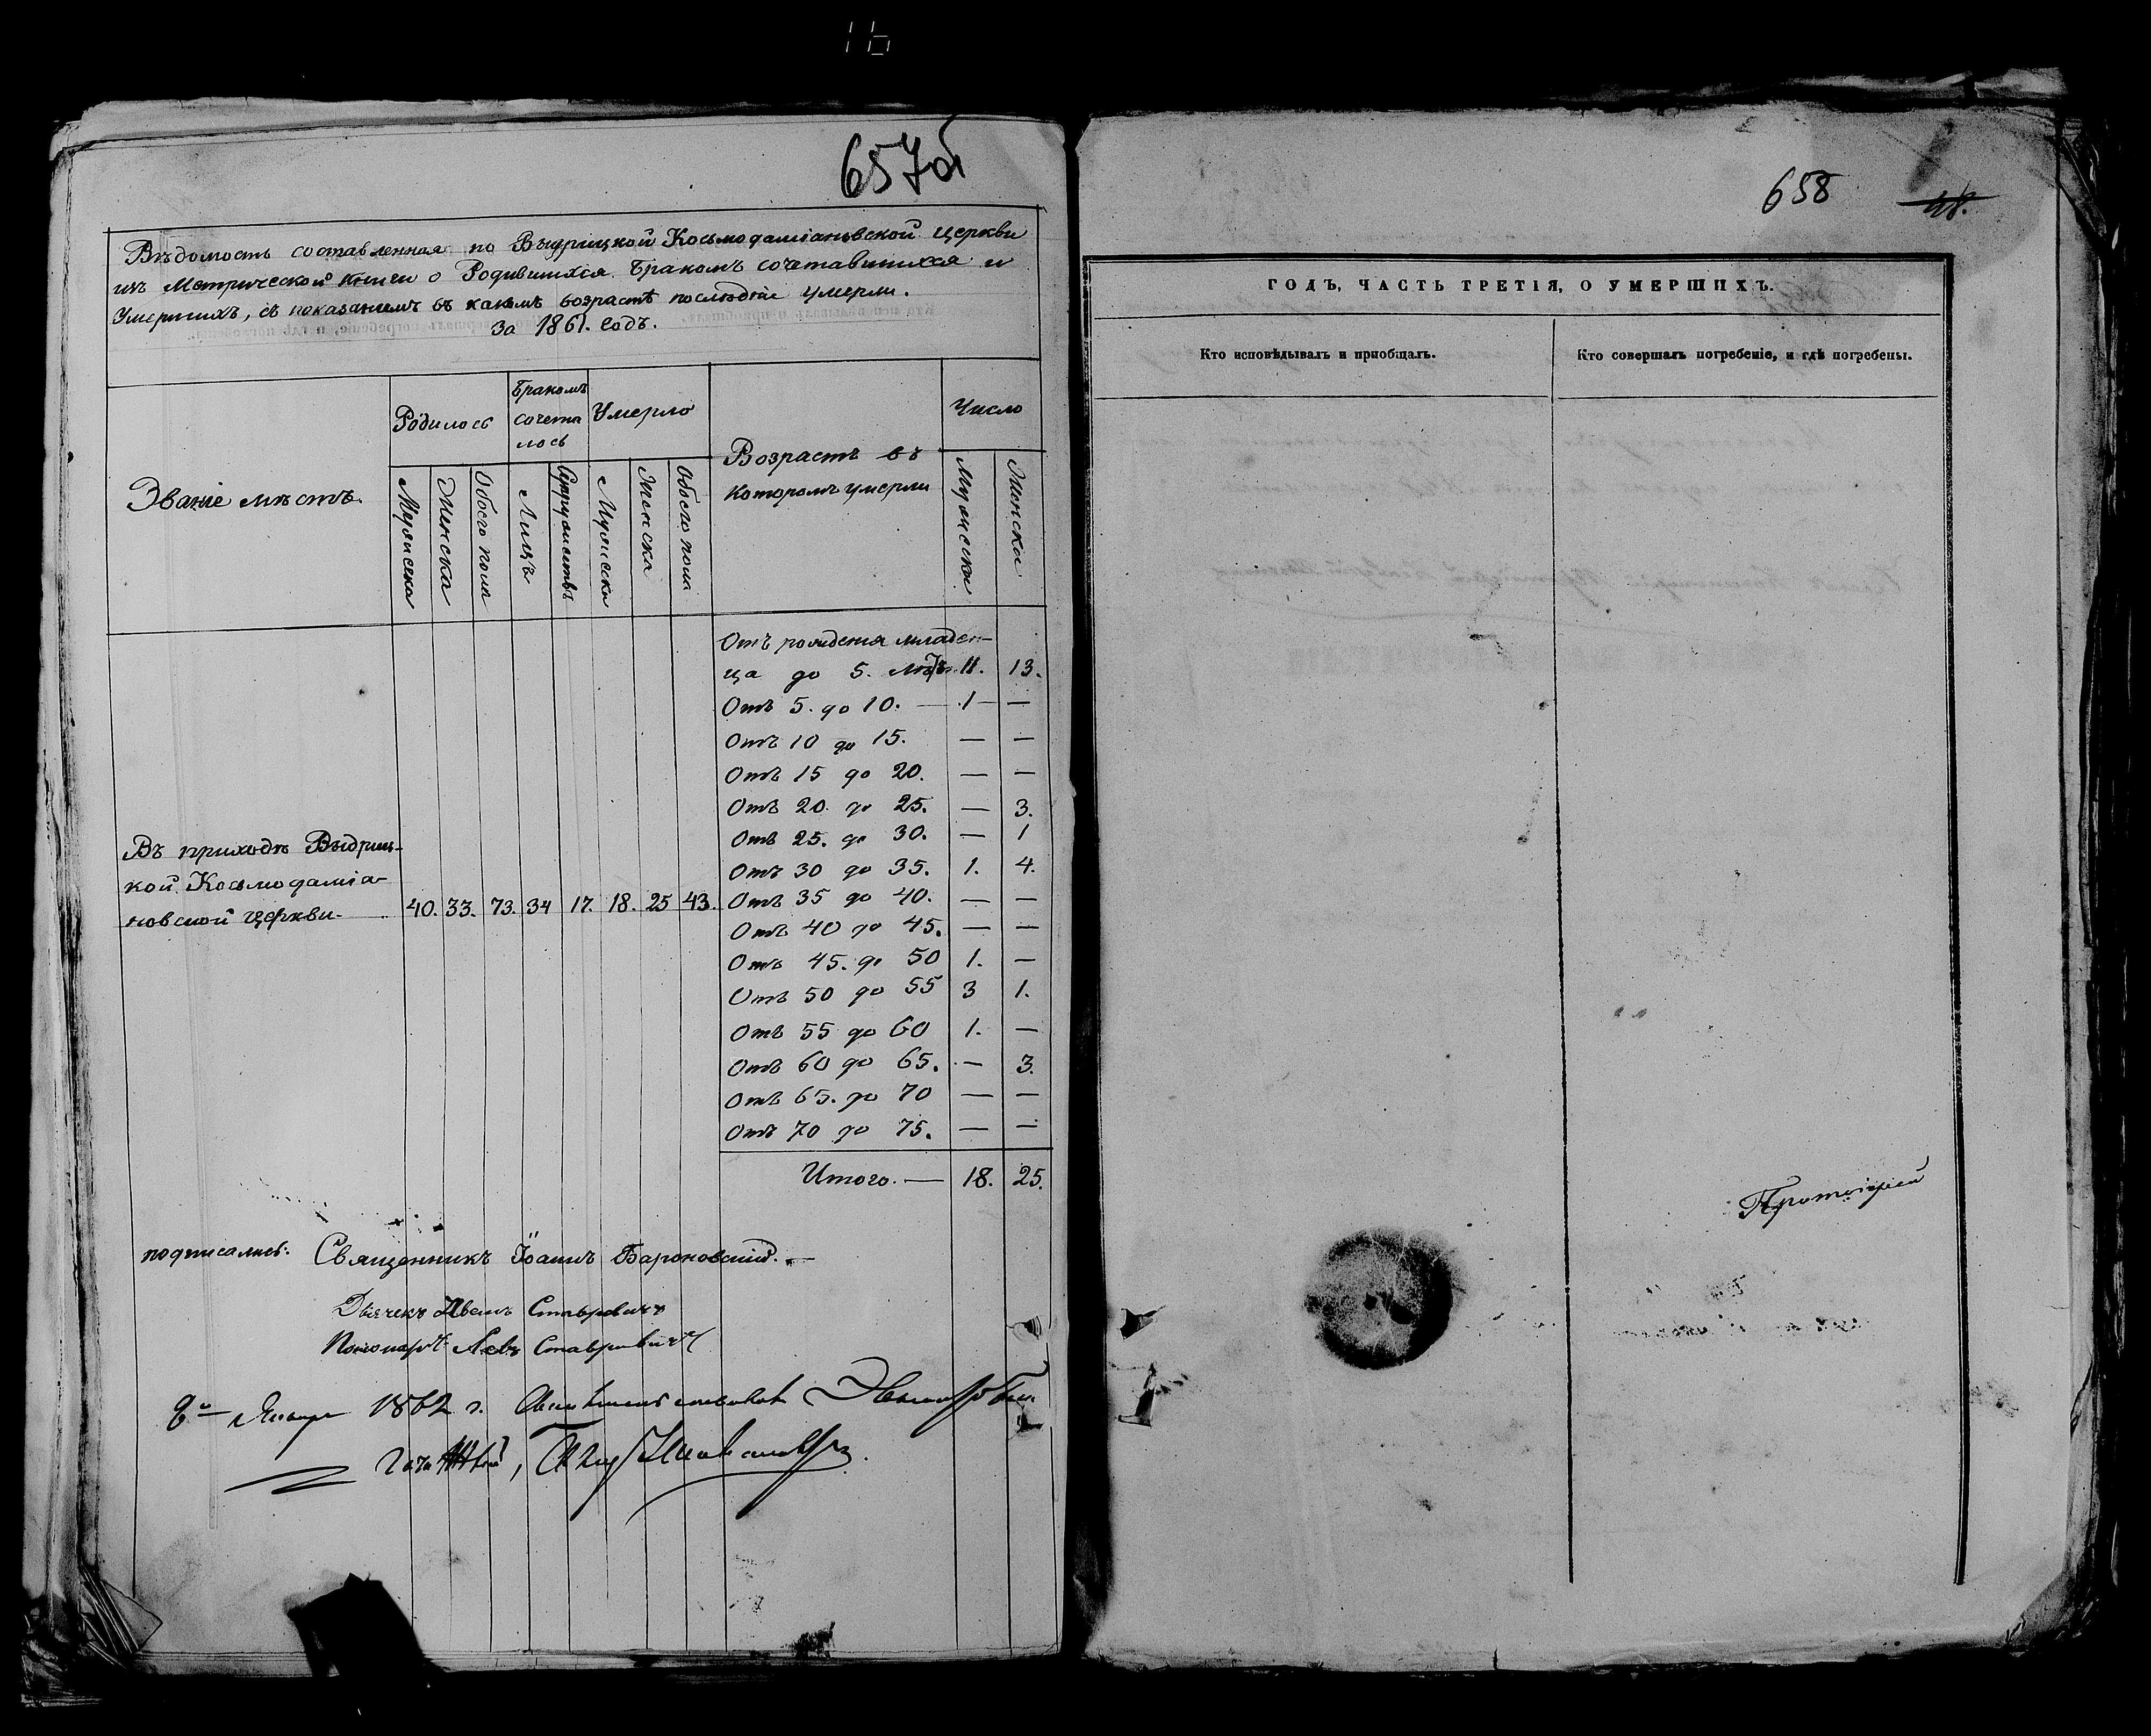 16
657об
Вѣдомость составленная по Выдрицкой Косьмодаміановской церкви
изъ Метрической книги о Родившихся Бракомъ сочетавшихся и
Умершихъ, съ показаніемъ въ какомъ возрастѣ послѣдніе умерли.
За 1861. годъ.
Званіе мѣстъ.
Родилось
Бракомъ
сочета
лось
Умерло
Возрастъ въ
которомъ умерли
Число
Мужеска
Женска
Обоего пола
Лицъ
Супружествъ
Мужеска
Женска
Обоего пола
Мужеска
Женска
Отъ рожденія младен-
ца до 5. лѣтъ. 11. 13.
Отъ 5. до 10. — 1 — —
Отъ 10 до 15. — —
Отъ 15 до 20. — —
Отъ 20. до 25. — 3.
Отъ 25. до 30. — 1
Отъ 30 до 35. 1. 4.
Отъ 35 до 40. — —
Отъ 40 до 45. — —
Отъ 45. до 50 1. —
Отъ 50 до 55 3 1.
Отъ 55 до 60 1. —
Отъ 60 до 65. — 3.
Отъ 65. до 70 — —
Отъ 70 до 75. — —
Итого. — 18. 25.
Въ приходѣ Выдриц-
кой Косьмодаміа-
новской церкви. 40. 33. 73. 34 17. 18. 25 43.
подписались: Священникъ Іоаннъ Бароновскій. —
Дьячекъ Иванъ Ставровичъ
Пономарь Левъ Ставровичъ
Января 1862 г.
658
48.
ГОДЪ, ЧАСТЬ ТРЕТІЯ, О УМЕРШИХЪ.
Кто исповѣдывалъ и пріобщалъ.
Кто совершалъ погребеніе, и гдѣ погребены.
Протоіерей